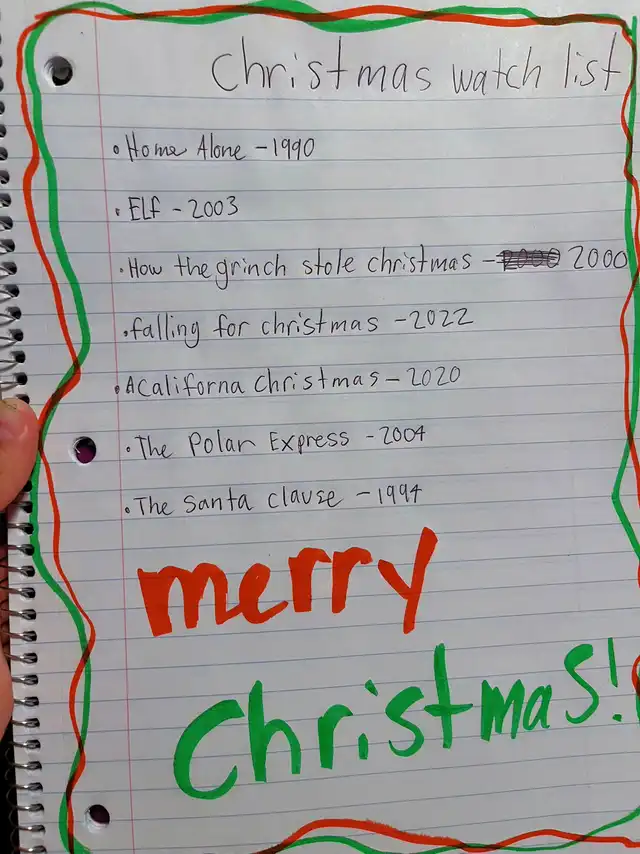 Christmas watch list
• Home Alone - 1990
• Elf - 2003
• How the grinch stole christmas - 2000
• falling for christmas - 2022
• A Californa christmas - 2020
• The Polar Express - 2004
• The santa clause - 1994
merry
Christmas!